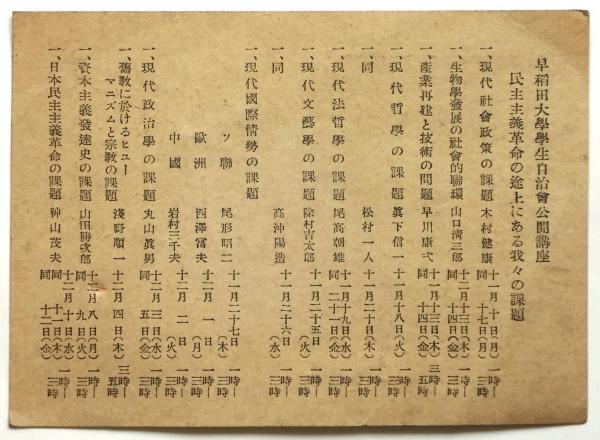 早稻田大學學生自治會公開講座
民主主義革命の途上にある我々の課題
一、現代社會政策の課題 木村健康 十一月十日(月) 一時―三時
同 十七日(月)
一、生物學發展の社會的聯環 山口淸三郎 十一月十三日(木) 一時―三時
同 十四日(金)
一、產業再建と技術の問題 早川康弌 十一月十三日(木) 三時―五時
同 十四日(金)
一、現代哲學の課題 眞下信一 十一月十八日(火) 一時―三時
一、同 松村一人 十一月二十日(木) 一時―三時
一、現代法哲學の課題 尾高朝雄 十一月十九日(水) 一時―三時
同 二十一日(金)
一、現代文藝學の課題 除村吉太郎 十一月二十五日(火) 一時―三時
一、同 高沖陽造 十一月二十六日(水) 一時―三時
一、現代國際情勢の課題
ソ聯 尾形昭二 十一月二十七日(木) 一時―三時
歐洲 西澤富夫 十二月一日(月) 一時―三時
中國 岩村三千夫 十二月二日(火) 一時―三時
一、現代政治學の課題 丸山眞男 十二月三日(水) 一時―三時
同 五日(金)
一、舊敎に於けるヒューマニズムと宗敎の課題 淺野順一 十二月四日(木) 三時―五時
一、資本主義發達史の課題 山田勝次郎 十二月八日(月) 一時―三時
同 九日(火)
一、日本民主主義革命の課題 神山茂夫 十二月十日(水) 一時―三時
同 十一日(木)
同 十二日(金)